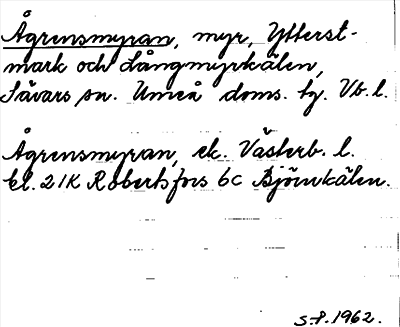 Ågrensmyran, myr, Ytterst-
mark och Långmyrkälen,
Sävars sn. Umeå doms. tg. Vb. l.
Ågrensmyran, ek. Västerb. l.
bl. 21K Robertsfors 6c Björnkälen.
S.P. 1962.